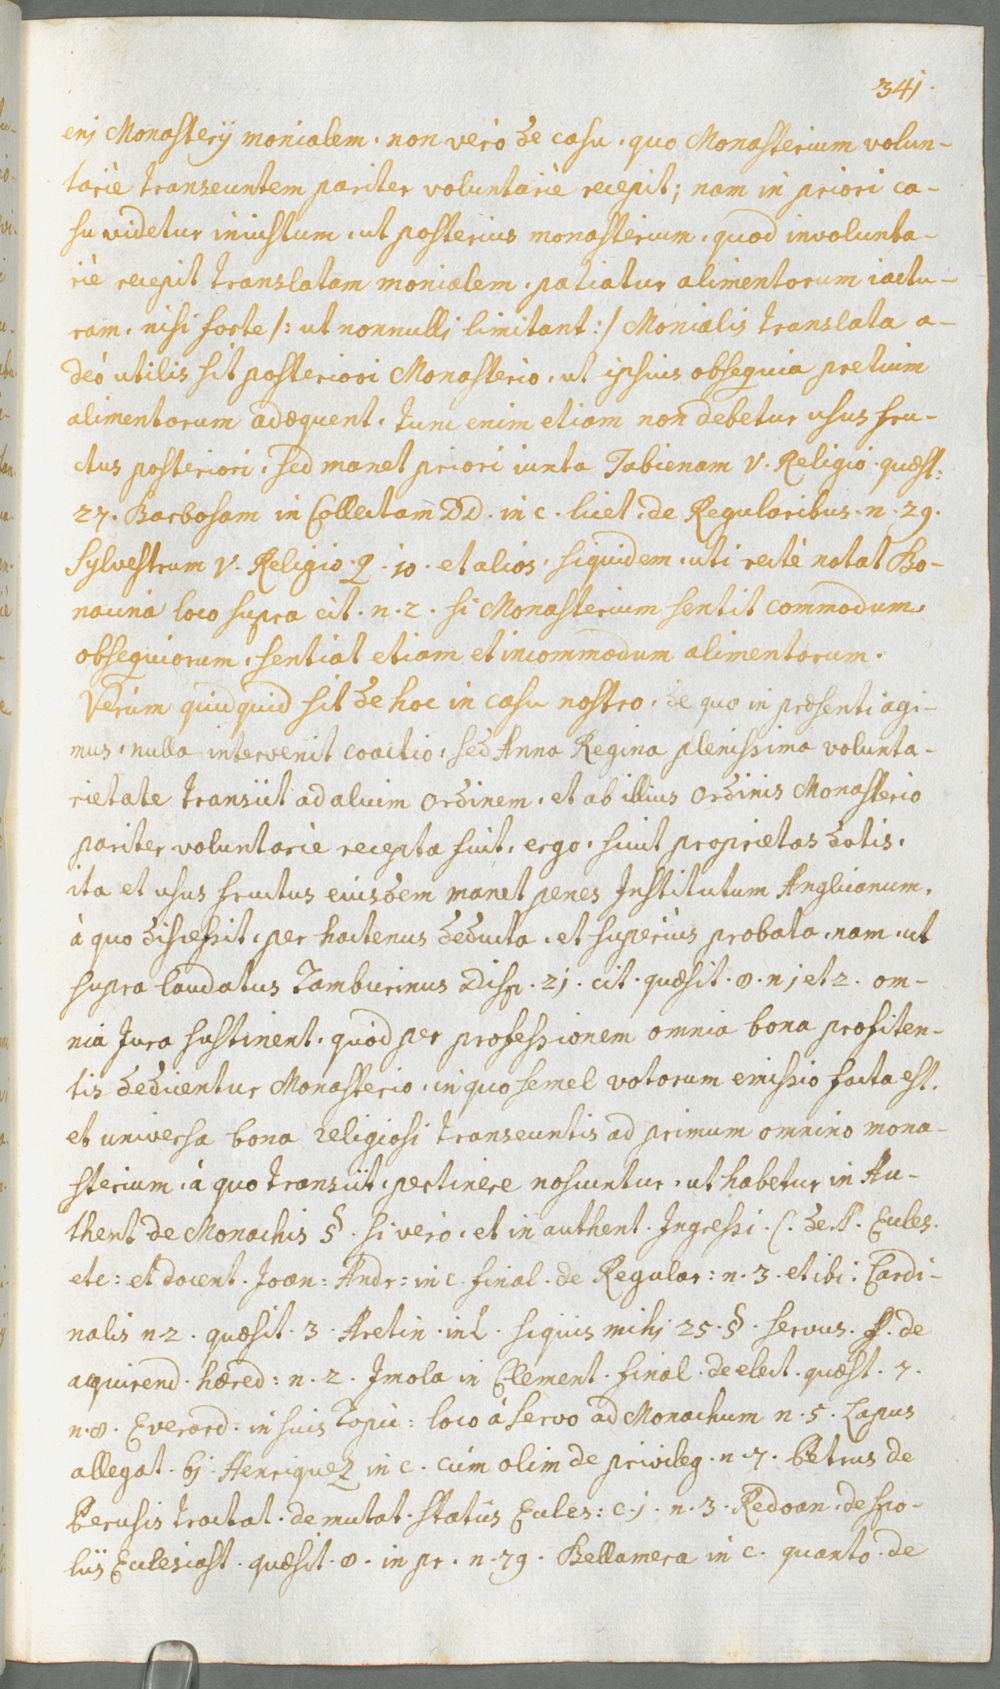 341.
eri Monasterÿ monialem, non verò de casu, quo Monasterium volun-
tariè transeuntem pariter voluntariè recepit; nam in priori ca-
su videtur iniustum, ut posterius monasterium, quod involunta-
riè recepit translatam monialem, patiatur alimentorum iactu-
ram, nisi forte /: ut nonnulli limitant :/ Monialis translata a-
deò utilis sit posteriori Monasterio, ut ipsius obsequia pretium
alimentorum adæquent, tunc enim etiam non debetur usus fru-
ctus posteriori, sed manet priori iuxta Tabienam V. Religio quæst.
27. Barbosam in Collectam DD. in c. licet, de Regularibus n. 29.
Sylvestrum V. Religio Q. 10. et alios, siquidem, uti rectè notat Bo-
nacina loco supra cit. n. 2. si Monasterium sentit commodum,
obsequiorum, sentiat etiam et incommodum alimentorum.
Verùm quidquid sit de hoc in casu nostro, de quo in præsenti agi-
mus, nulla intervenit coactio, sed Anna Regina plenissima volunta-
rietate transiit ad alium Ordinem, et ab illius Ordinis Monasterio
pariter voluntariè recepta fuit, ergo, sicut proprietas dotis,
ita et usus fructus eiusdem manet penes Institutum Anglicanum,
à quo discessit, per hactenus deducta, et superiùs probata, nam, ut
supra laudatus Tamburinus Disp. 21. cit. quæsit. 8. n 1 et 2. om-
nia Jura sustinent, quòd per professionem omnia bona profiten-
tis dedicentur Monasterio, in quo semel votorum emissio facta est,
et universa bona religiosi transeuntis ad primum omnino mona-
sterium, à quo transiit, pertinere noscuntur, ut habetur in Au-
thent de Monachis §. si verò, et in authent. Ingressi. C. de SS. Eccles.
etc: et docent. Joan: Andr: in c. final. de Regular: n. 3. et ibi: Cardi-
nalis n. 2. quæsit. 3. Aretin. in L. siquis mihj 25. §. servus. ff. de
acquirend. hæred: n. 2. Imola in Clement. final. de elect. quæst. 7.
n. 8. Everard. in suis Topic: loco à servo ad Monachum n. 5. Lapus
allegat. 61. Henriquez in c. cùm olim de privileg. n. 7. Petrus de
Perusis tractat. de mutat. statûs Eccles: c. 1. n. 3. Redoan. de spo-
lijs Ecclesiast. quæsit. 8. in pr. n. 79. Bellamera in c. quanto. de